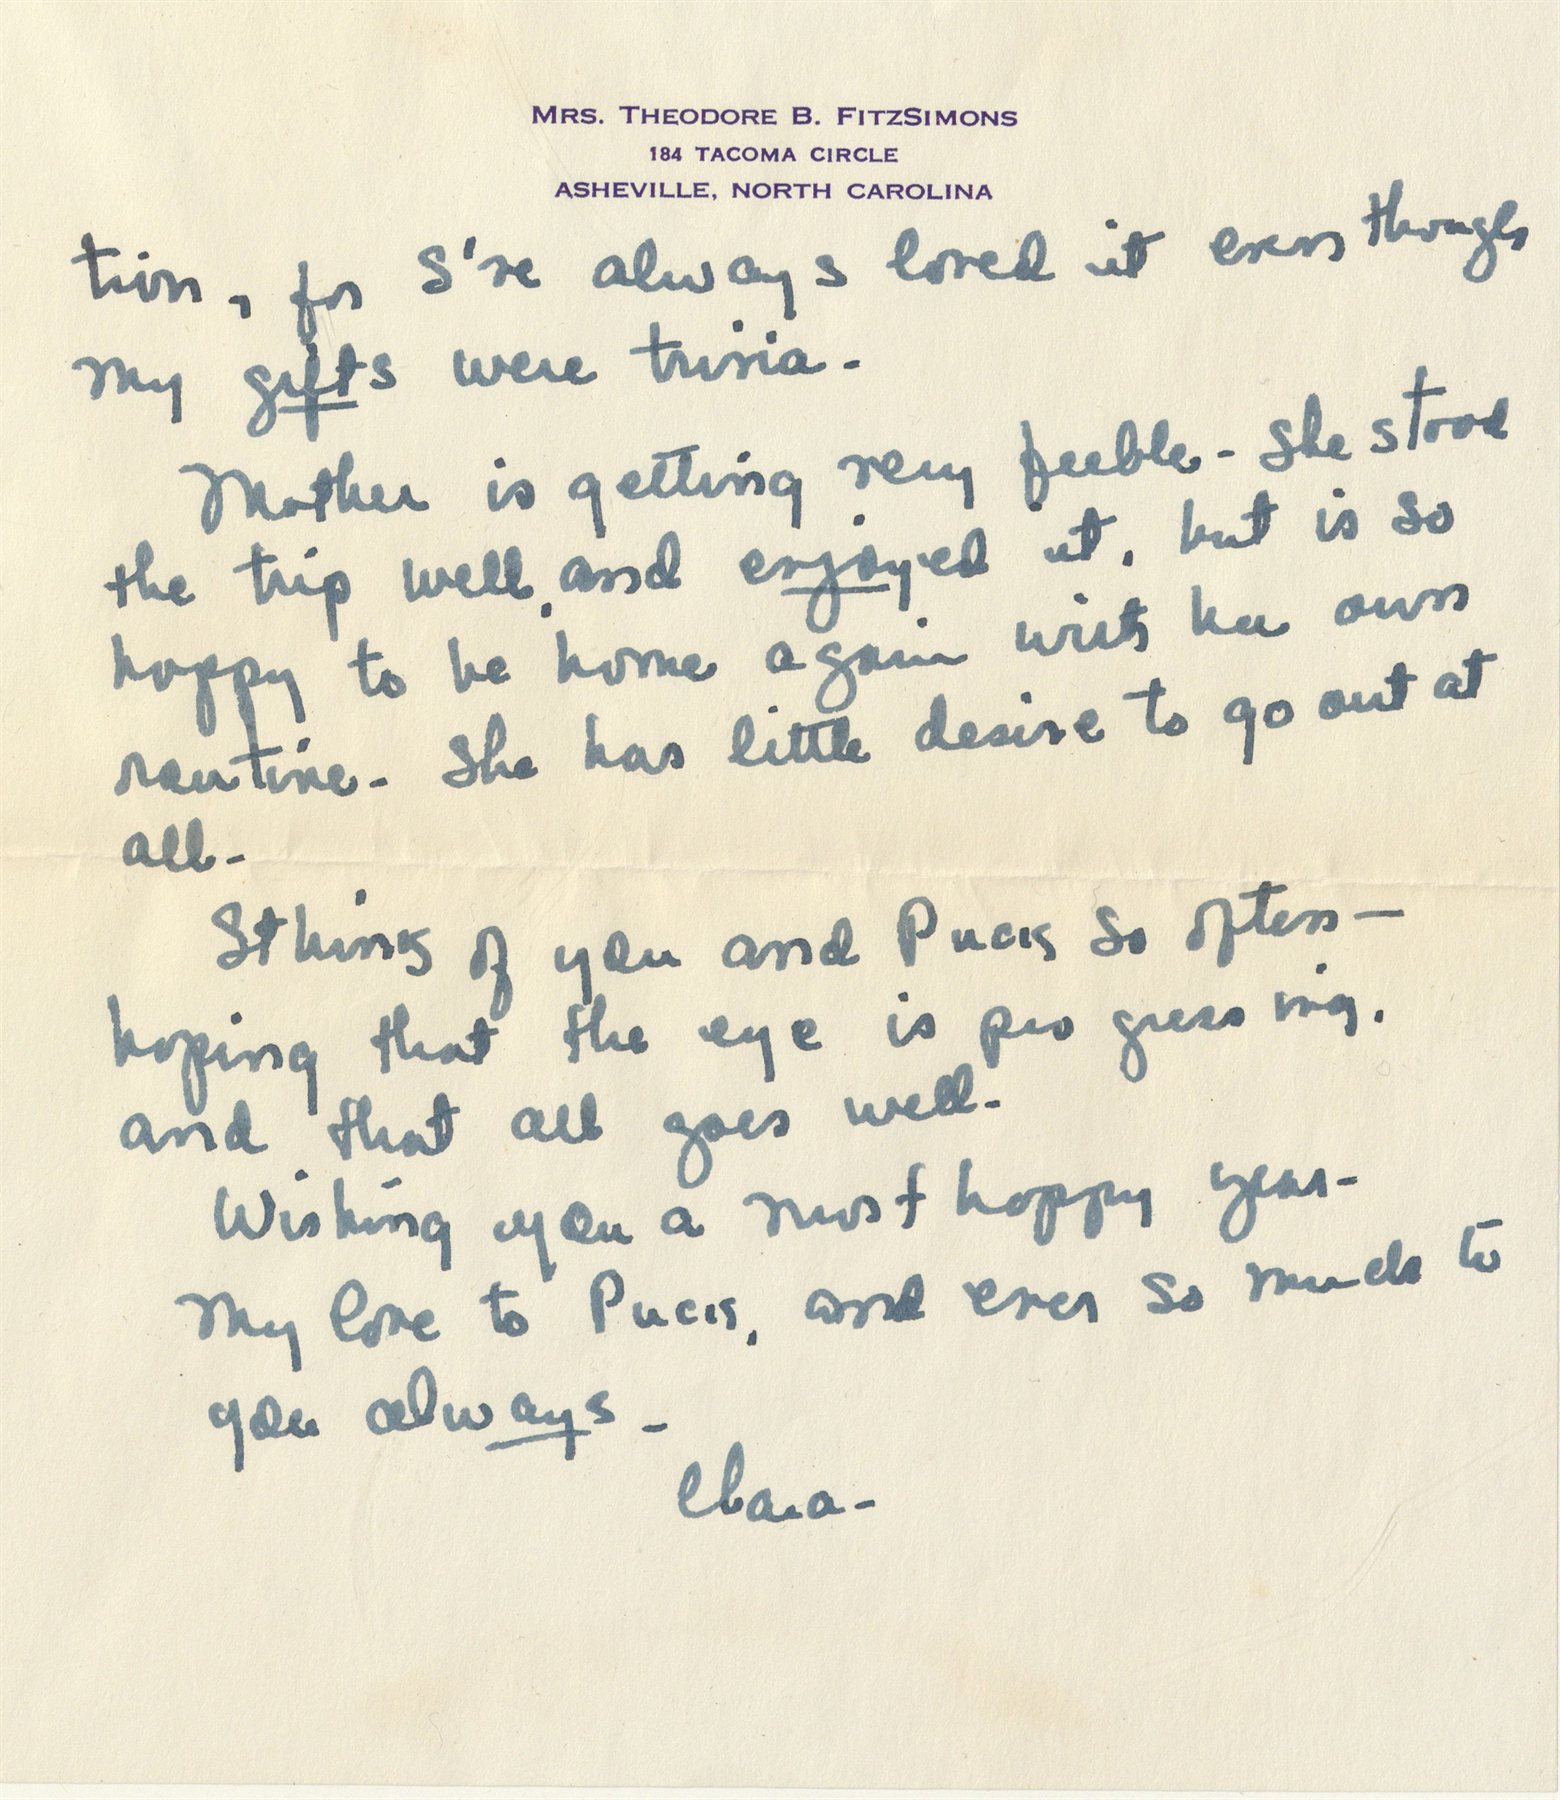 MRS. THEODORE B. FITZSIMONS
184 TACOMA CIRCLE
ASHEVILLE, NORTH CAROLINA
tion, for I've always loved it even though
my gifts were trivia -
Mother is getting very feeble - She stood
the trip well, and enjoyed it, but is so
happy to be home again with her own
routine - She has little desire to go out at
all -
I think of you and Puck so often —
hoping that the eye is progressing,
and that all goes well -
Wishing you a most happy year -
My love to Puck, and ever so much to
you always -
Clara -